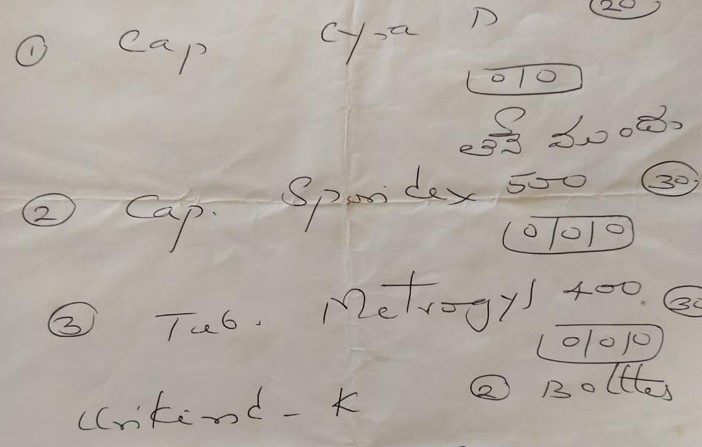 ① Cap Cyra D 20
0/0
తినే ముందు
② Cap. Sporidex 500 30
0/0/0
③ Tab. Metrogyl 400. 30
0/0/0
Urikind - K ② Bottles